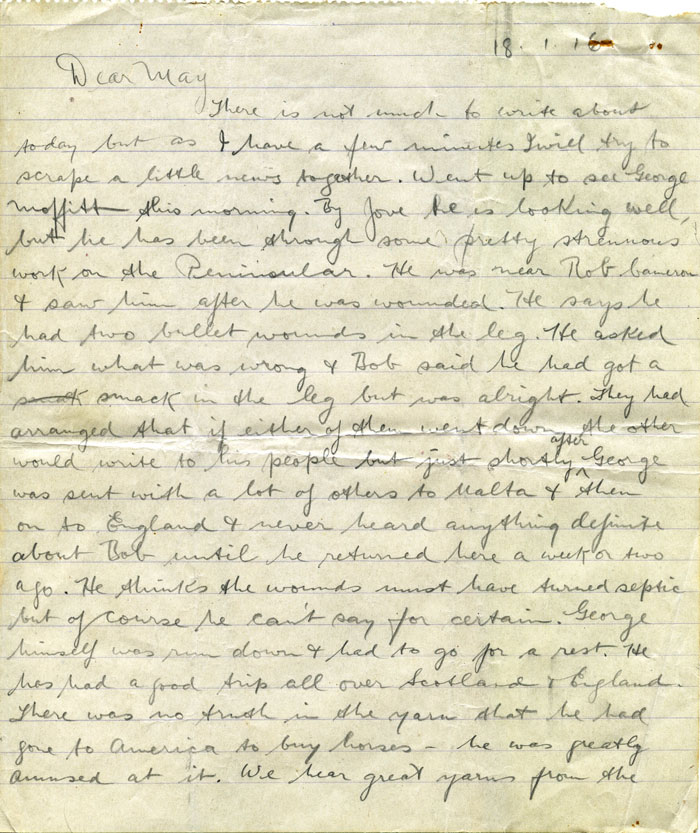 18. 1. 16
Dear May
There is not much to write about
today but as I have a few minutes I will try to
scrape a little news together. Went up to see George
Moffitt this morning. By Jove he is looking well,
but he has been through some pretty strennous
work on the Peninsular. He was near Rob Cameron
& saw him after he was wounded. He says he
had two bullet wounds in the leg. He asked
him what was wrong & Bob said he had got a
smack in the leg but was alright. They had
arranged that if either of them went down the other
would write to his people but just shortly after George
was sent with a lot of others to Malta & then
on to England & never heard anything definite
about Bob until he returned here a week or two
ago. He thinks the wounds must have turned septic
but of course he can't say for certain. George
himself was run down & had to go for a rest. He
has had a good trip all over Scotland & England.
There was no truth in the yarn that he had
gone to America to buy horses - he was greatly
amused at it. We hear great yarns from the